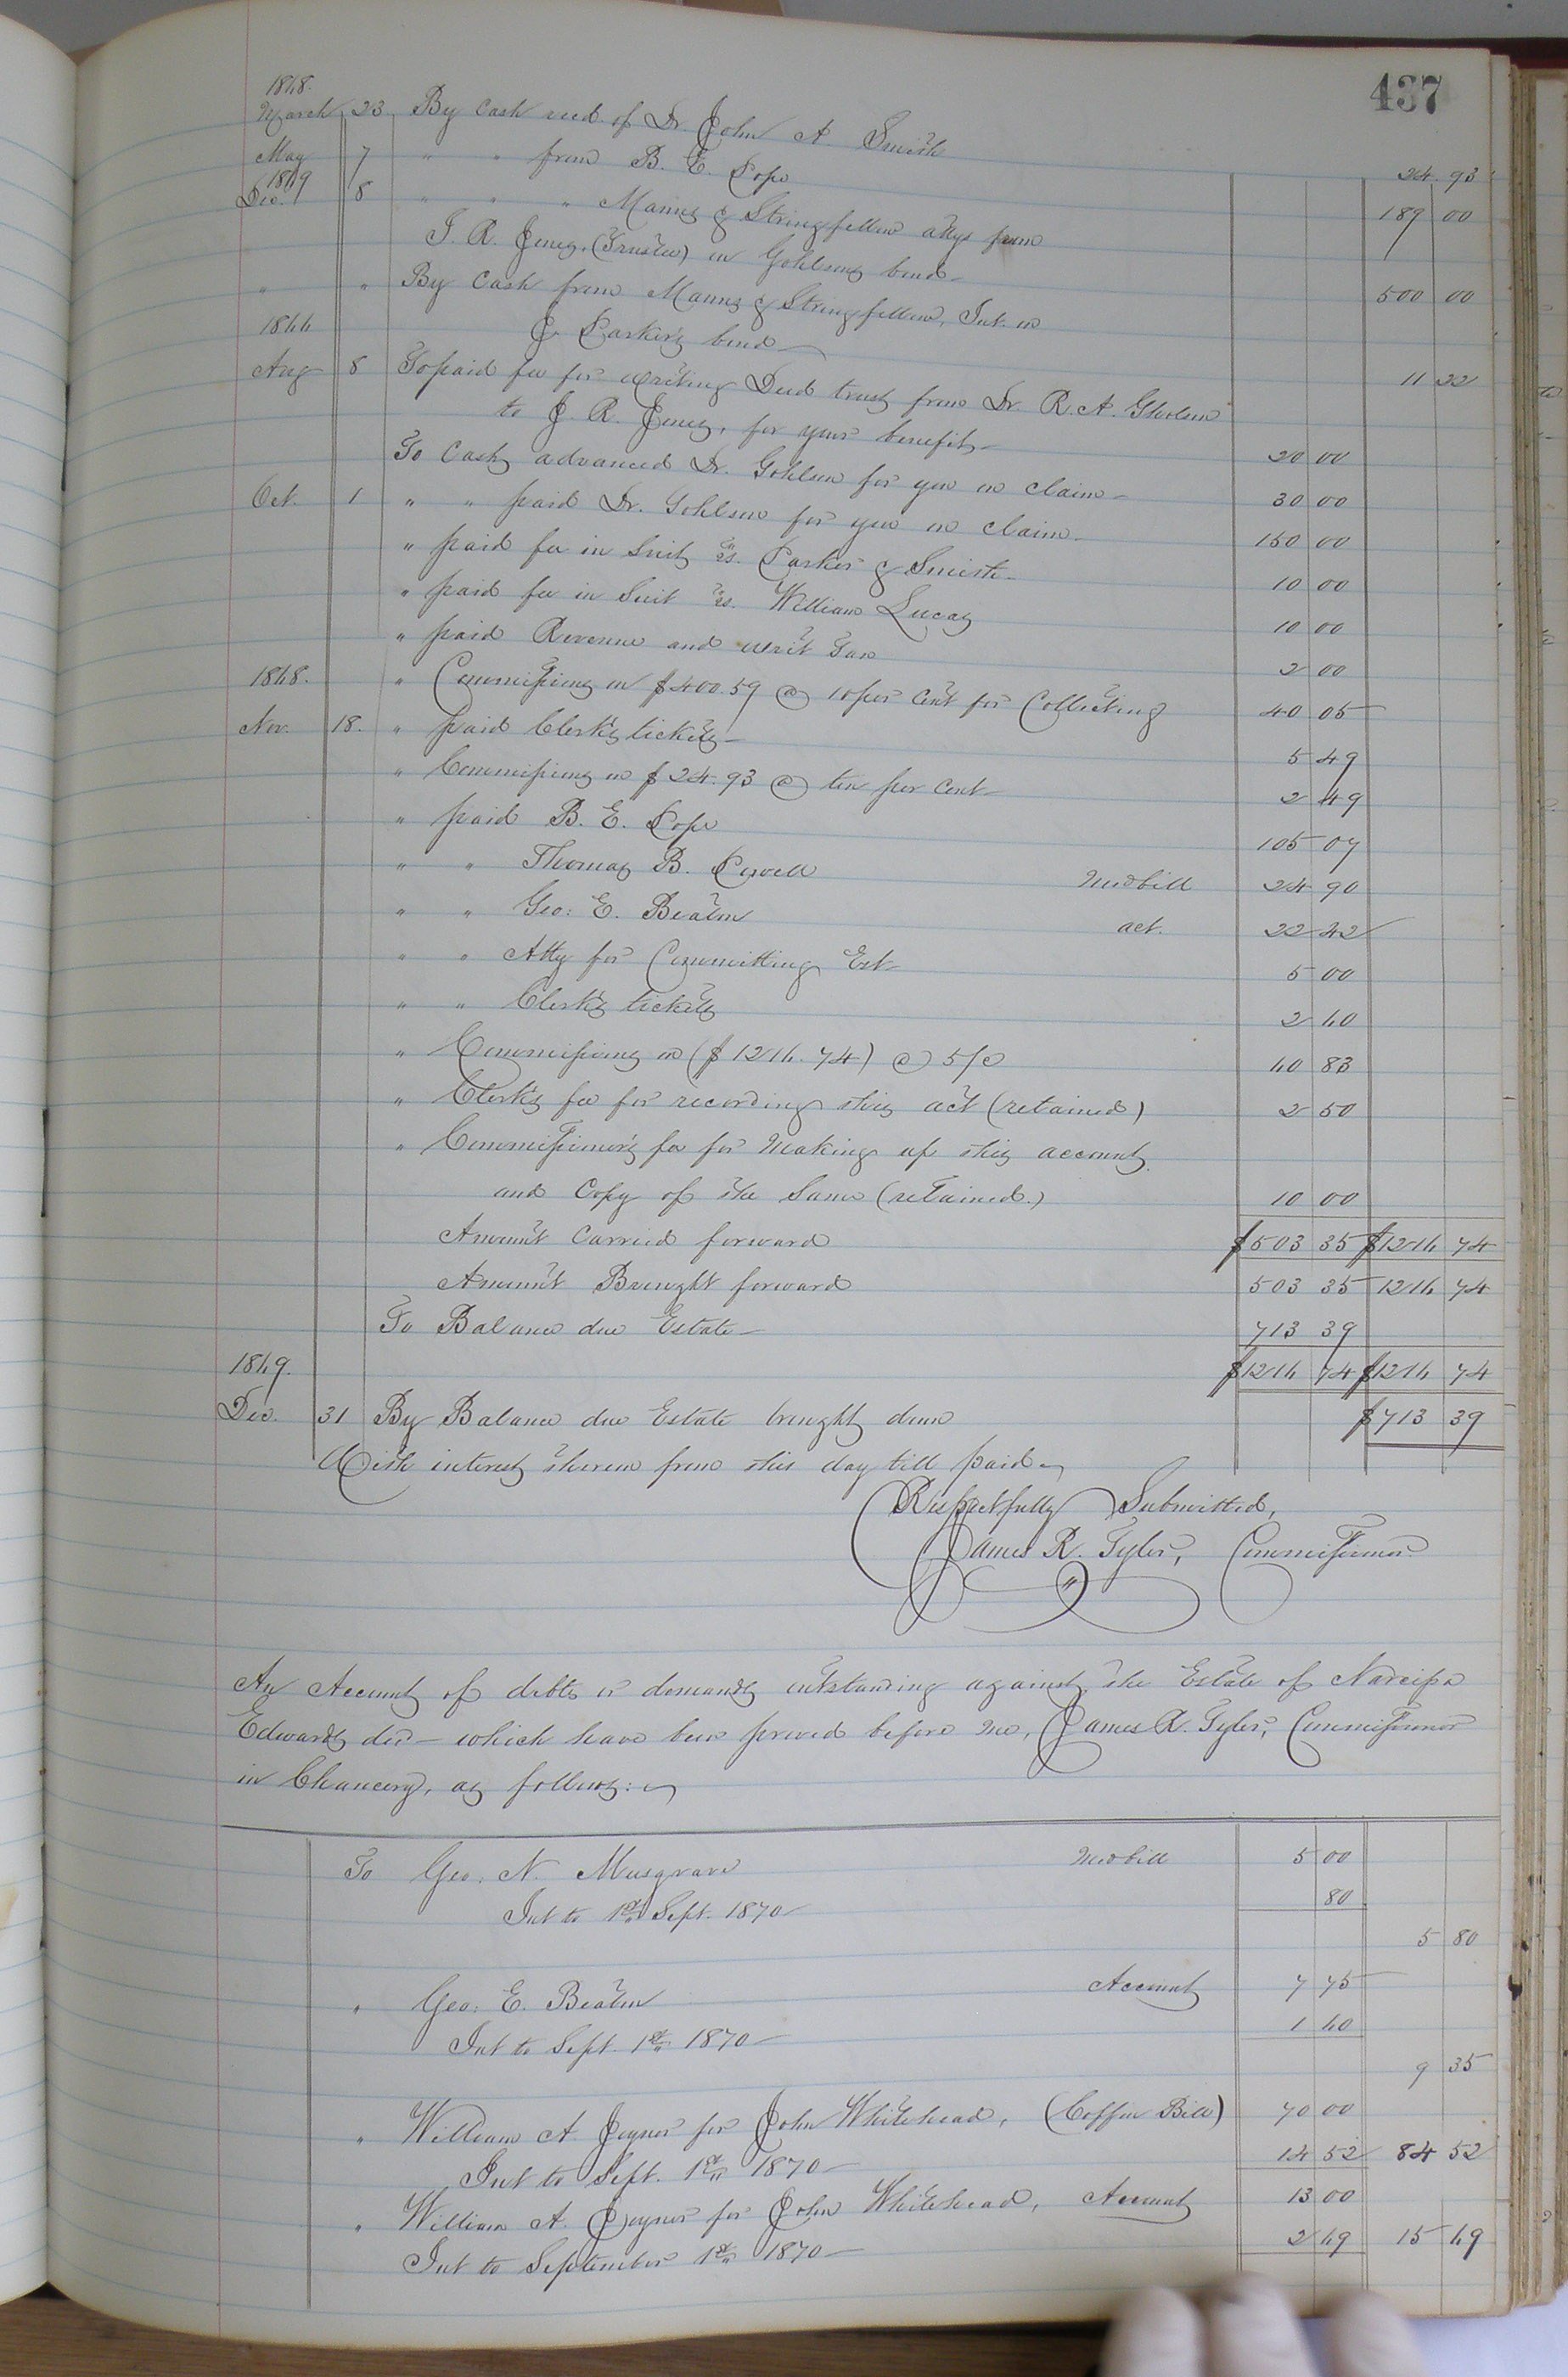 437
1868.
March 23 By Cash recd. of Dr. John A. Smith 24 93
May 7 " " from B. E. Pope 189 00
1869
Dec. 8 " " " Manny & Stringfellow attys from
J. R. Jones, (Trustee) on Gohlsons bond 500 00
" " By Cash from Manny & Stringfellow, Int. on
J. Parker's bond 11 22
1866
Aug 8 To paid fee for writing Deed trust from Dr. R. A. Gholson
to J. R. Jones, for your benefit 20 00
To Cash advanced Dr. Gohlson for you on claim 30 00
Oct. 1 " " paid Dr. Gohlson for you on claim 150 00
" paid fee in Suit vs. Parker & Smith 10 00
" paid fee in Suit vs. William Lucas 10 00
" paid Revenue and writ Tax 2 00
" Commissions on $400.59 @ 10 per Cent for Collecting 40 05
1868.
Nov. 18. " paid Clerk's tickets 5 49
" Commissions on $24.93 @ ten per cent 2 49
" paid B. E. Pope 105 07
" " Thomas B. Powell Med bill 24 90
" " Geo: E. Beaton act. 22 42
" " Atty for Committing Est 5 00
" " Clerk's tickets 2 60
" Commissions on ($1216.74) @ 5/c 60 83
" Clerk's fee for recording this act (retained) 2 50
" Commissioner's fee for Making up this account
and Copy of the Same (retained.) 10 00
Amount Carried forward $503 35 $1216 74
Amount Brought forward 503 35 1216 74
To Balance due Estate 713 39
$1216 74 $1216 74
1869.
Dec. 31 By Balance due Estate brought down $713 39
With interest thereon from this day till paid
Respectfully Submitted,
James R. Tyler, Commissioner
An Account of debts or demands outstanding against the Estate of Narcissa
Edwards dec - which have been proved before me, James R. Tyler, Commissioner
in Chancery, as follows:
To Geo: N. Musgrave Med bill 5 00
Int to 1st Sept. 1870 80
5 80
" Geo: E. Beaton Account 7 75
Int to Sept. 1st 1870 1 60
9 35
" William A. Joyner for John Whitehead, (Coffin Bill) 70 00
Int to Sept. 1st 1870 14 52 84 52
" William A. Joyner for John Whitehead, Account 13 00
Int to September 1st 1870 2 69 15 69